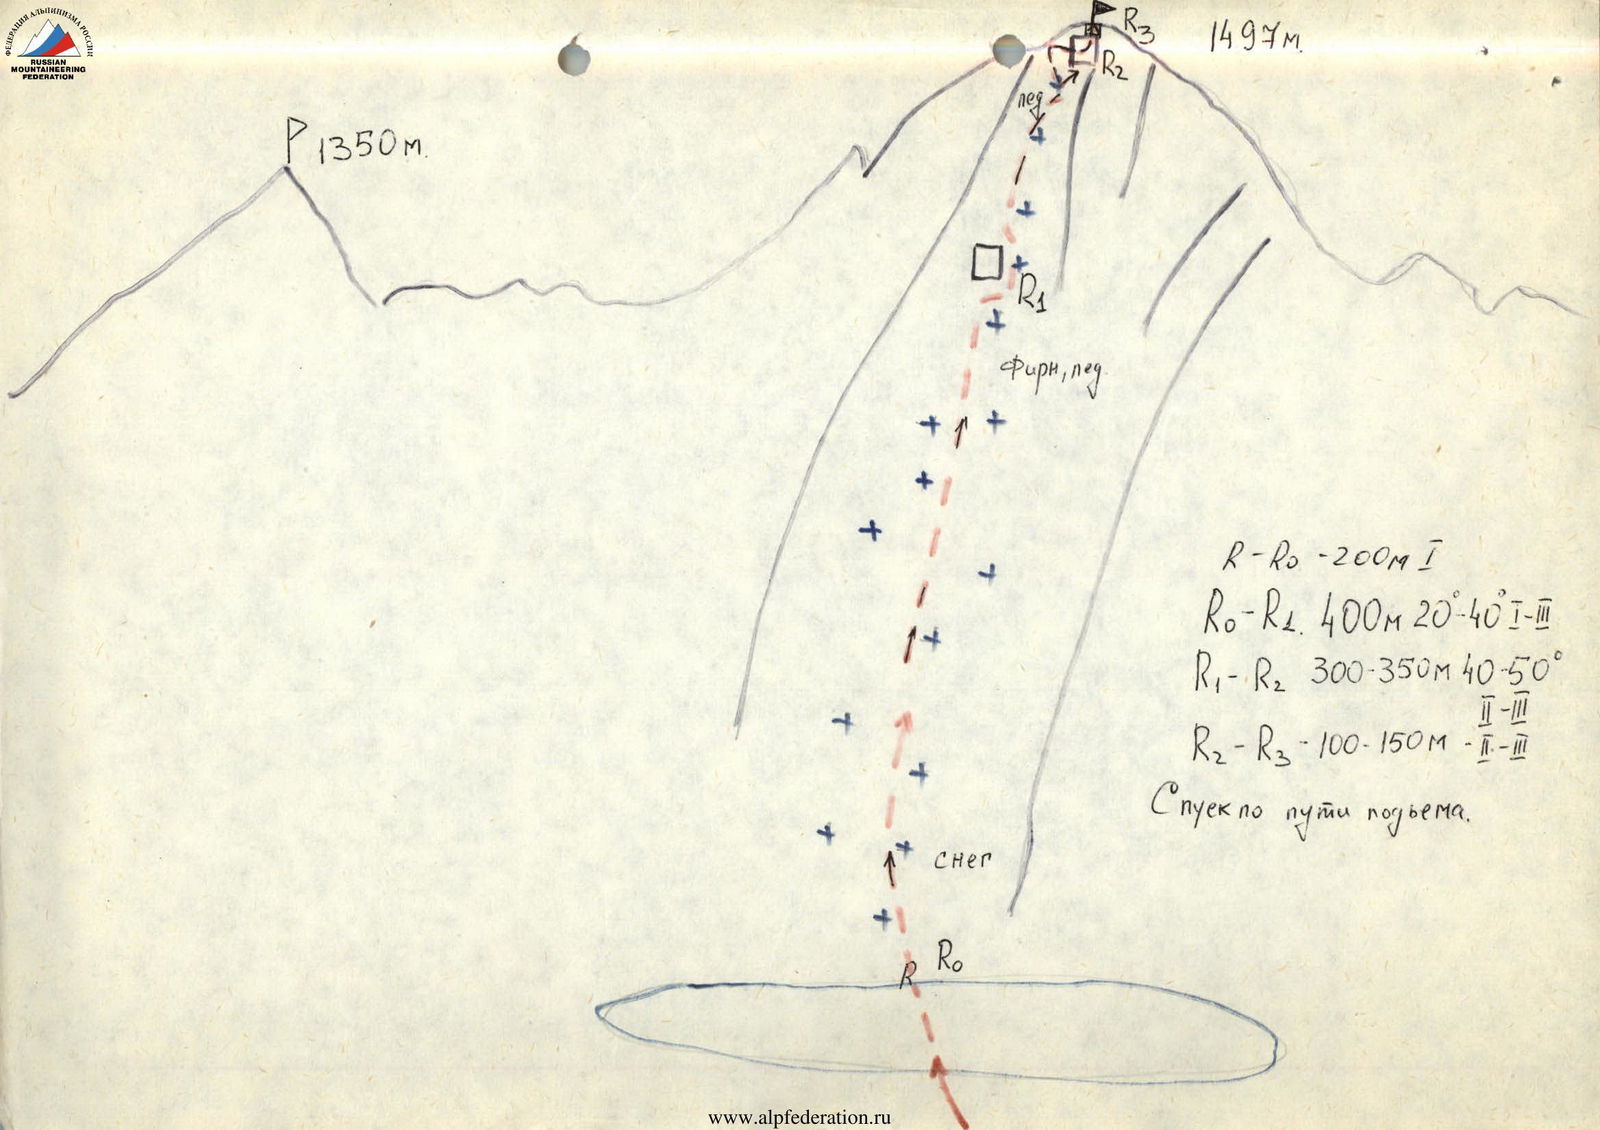 ФЕДЕРАЦИЯ АЛЬПИНИЗМА РОССИИ
RUSSIAN
MOUNTAINEERING
FEDERATION
R3
1497м.
R2
лед
1350м.
R1
Фирн, лед.
R-R0 -200м I
R0-R1. 400м 20°-40° I-III
R1-R2 300-350м 40-50°
II-III
R2-R3-100-150м -II-III
Спуск по пути подьема.
снег
R0
R
www.alpfederation.ru